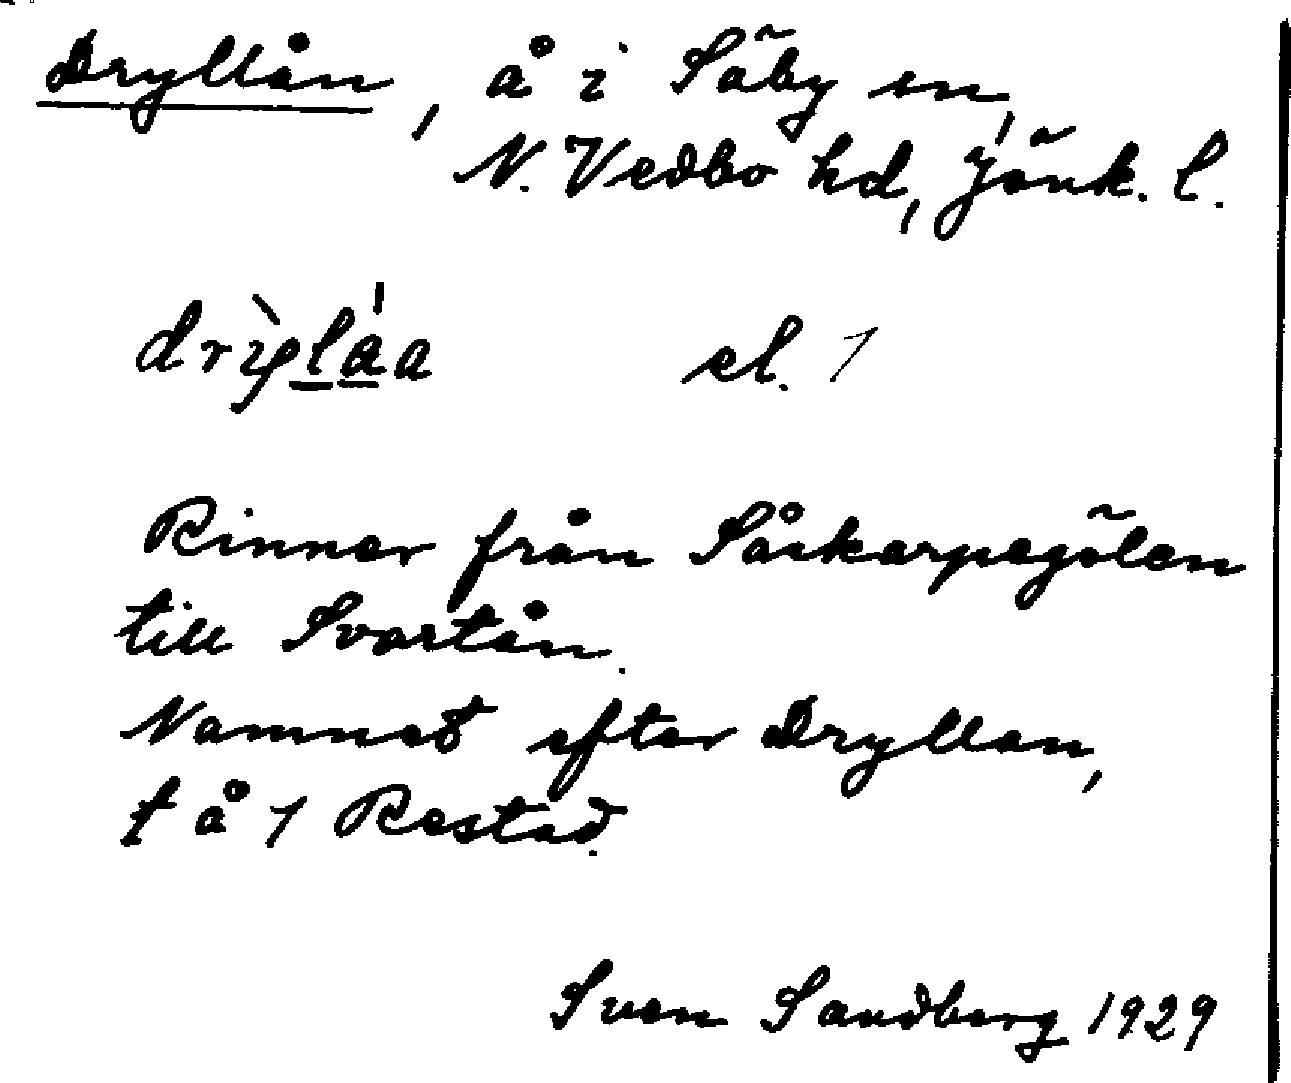 Dryllån, å i Säby sn,
N. Vedbo hd, Jönk. l.
el. 1
Rinner från Såskarpegölen
till Svartån.
Namnet efter Dryllan,
t å 1 Restad.
Sven Sandberg 1929